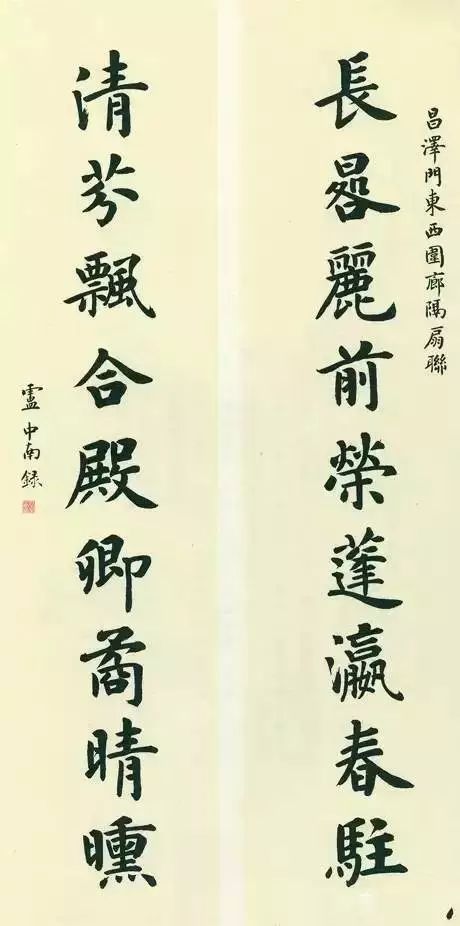 昌澤門東西圍廊隅扇聯
長晷麗前榮蓬瀛春駐
清芬飄合殿卿矞晴曛
盧中南録